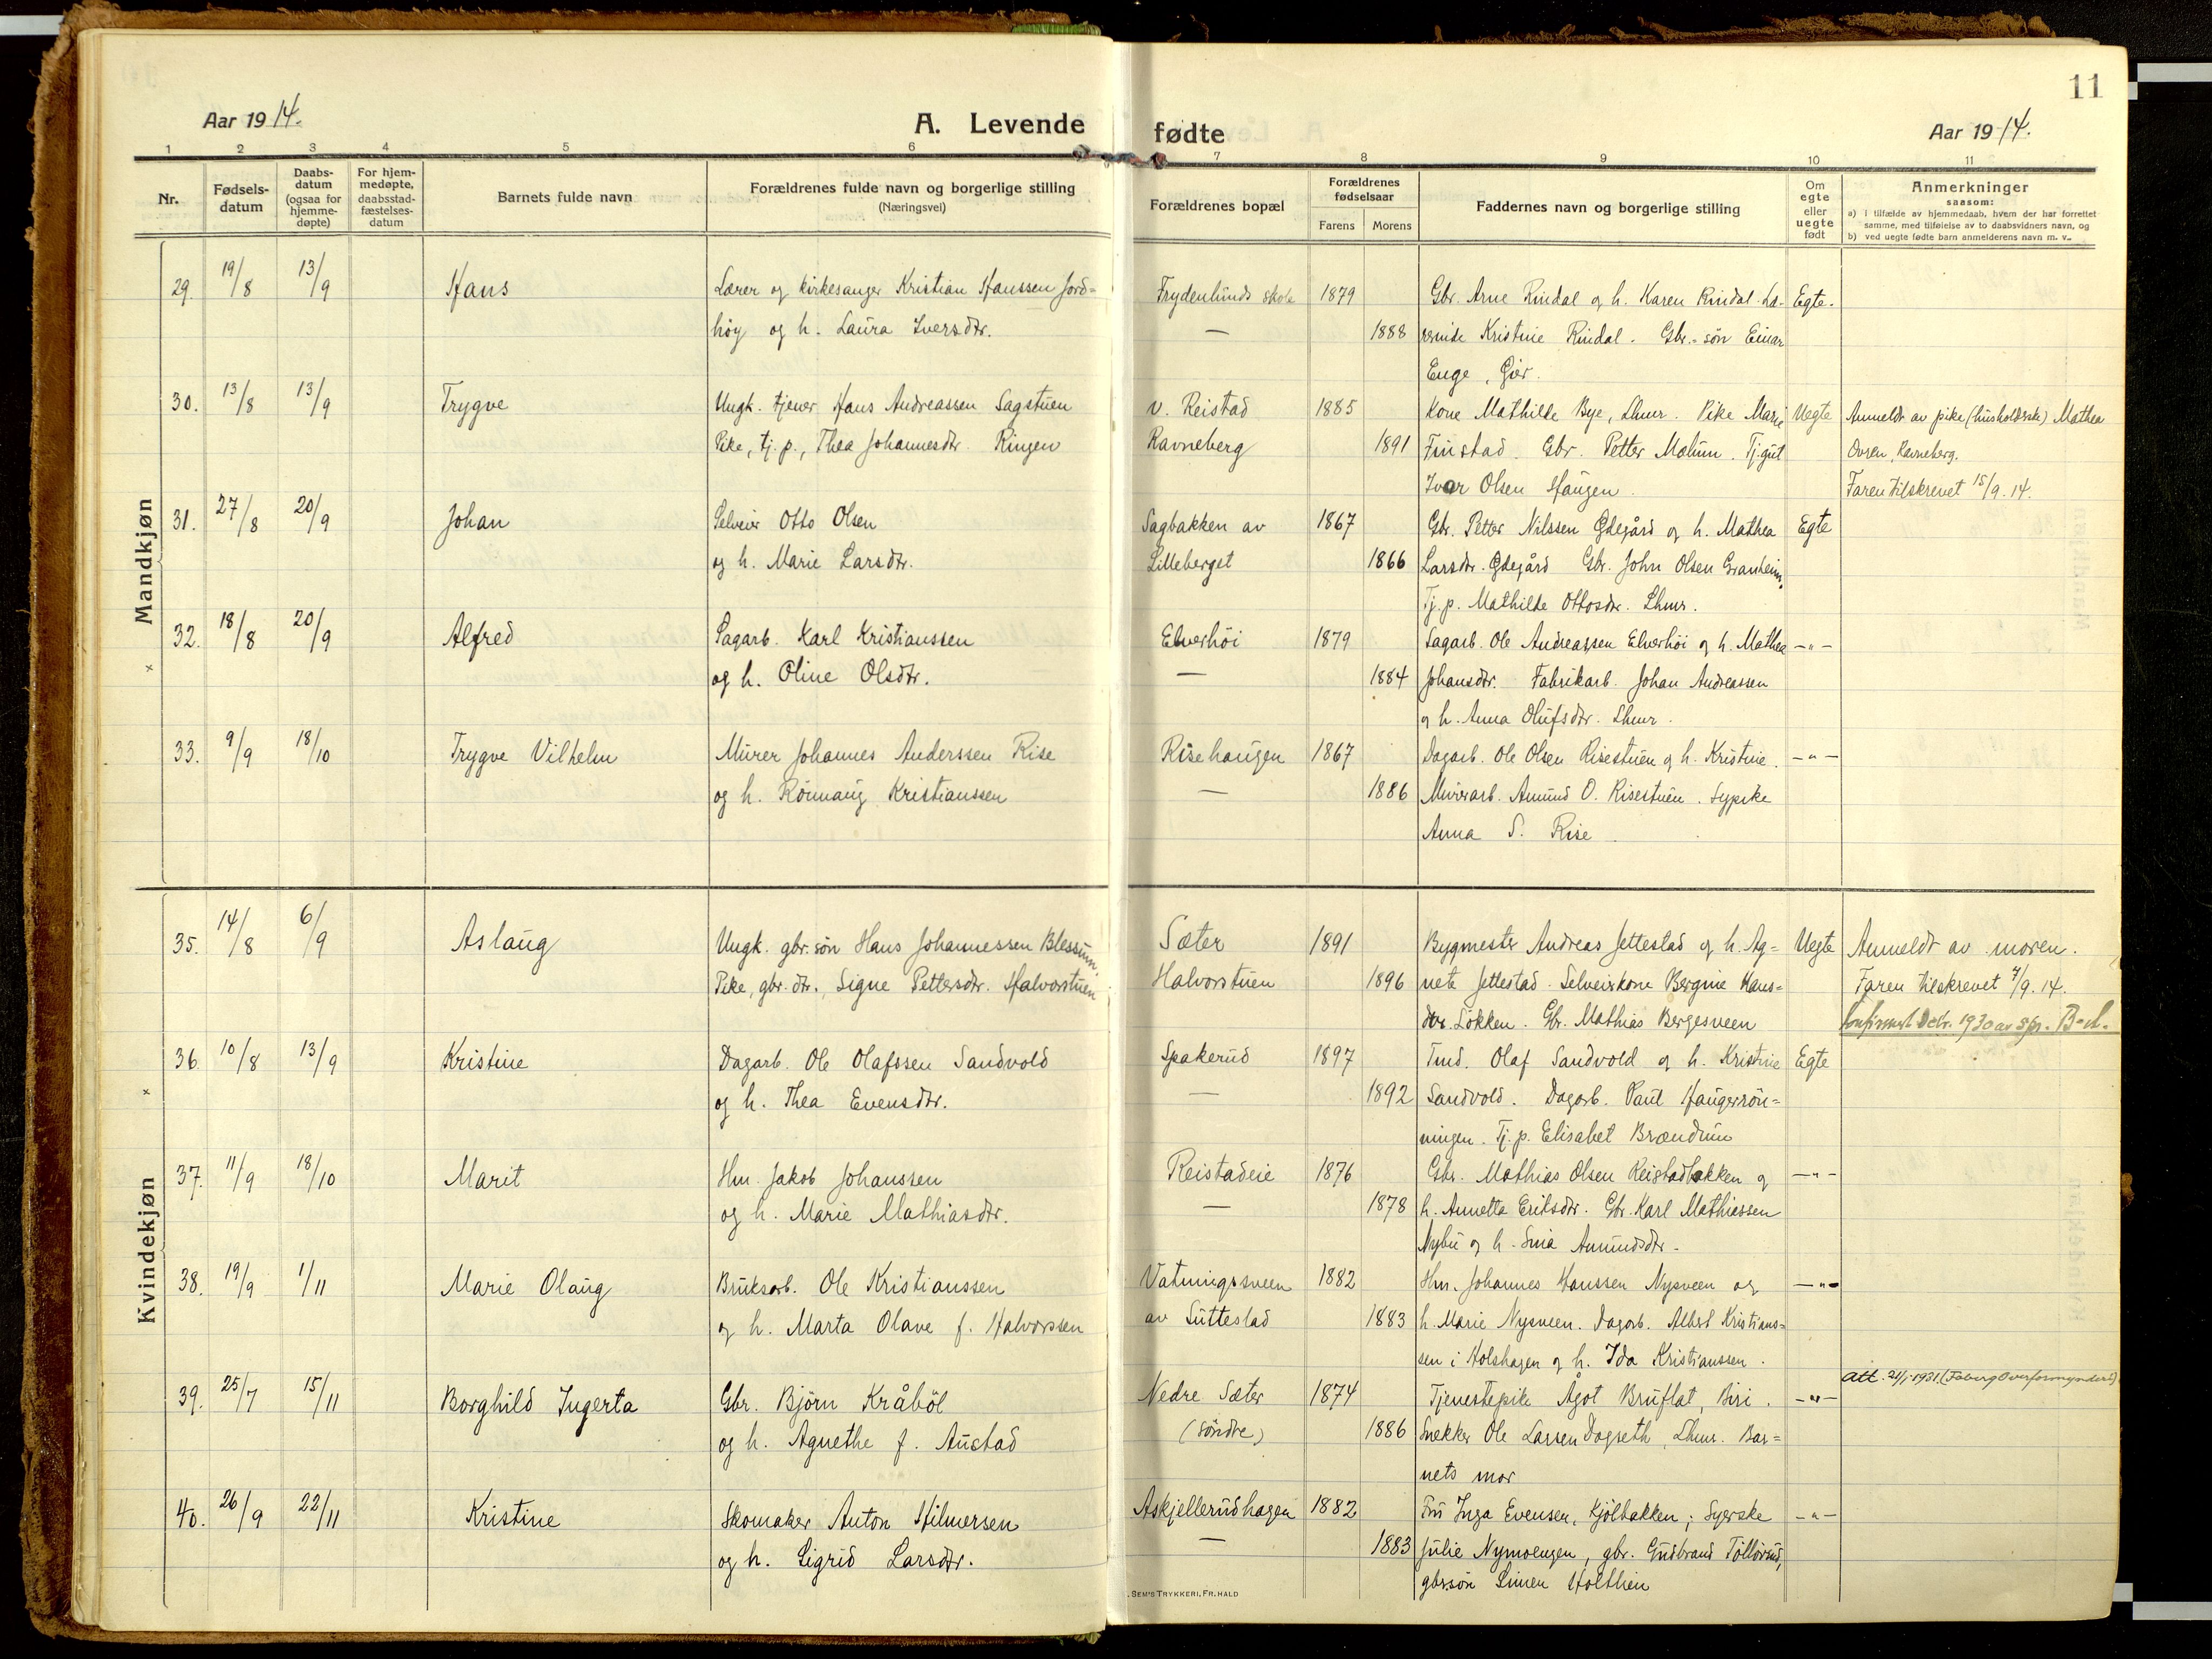 11
Aar 1914.
A. Levende fødte
Aar 1914.
1 2 3 4 5 6 7 8 9 10 11
Nr.
Fødsels-
datum
Daabs-
datum
(ogsaa for
hjemme-
døpte)
For hjem-
medøpte,
daabsstad-
fæstelses-
datum
Barnets fulde navn
Forældrenes fulde navn og borgerlige stilling
(Næringsvei)
Forældrenes bopæl
Forældrenes
fødselsaar
Farens Morens
Faddernes navn og borgerlige stilling
Om
egte
eller
uegte
født
Anmerkninger
saasom:
a) i tilfælde av hjemmedaab, hvem der har forrettet
samme, med tilføielse av to daabsvidners navn, og
b) ved uegte fødte barn anmelderens navn m. v.
Mandkjøn
29. 19/8 13/9 Hans Lærer og kirkesanger Kristian Hanssen Jord= Frydenlunds skole 1879 Gbr. Arne Rindal og h. Karen Rindal. Læ- Egte.
høy og h. Laura Iversdtr. — 1888 rerinde Kristine Rindal. Gbr.=søn Einar
Enge, Gjer.
30. 13/8 13/9 Trygve Ungk. tjener Hans Andreassen Sagstuen v. Reistad 1885 Kone Mathilde Bye, Lhmr. Pike Marie Uegte Anmeldt av pike (husholdersk.) Mathea
Pike, tj.p., Thea Johannesdtr. Ringen Ravneberg 1891 Finstad. Gbr. Petter Molum. Tj.gut Ovren, Ravneberg.
Ivar Olsen Haugen. Faren tilskrevet 15/9. 14.
31. 27/8 20/9 Johan Selveier Otto Olsen Sagbakken av 1867 Gbr. Petter Nilssen Ødegård og h. Mathea Egte
og h. Marie Larsdtr. Lilleberget 1866 Larsdtr. Ødegård Gbr. John Olsen Granheim.
Tj.p. Mathilde Ottosdtr. Lhmr.
32. 18/8 20/9 Alfred Sagarb. Karl Kristianssen Elverhöi 1879 Sagarb. Ole Andreassen Elverhöi og h. Mathea —„—
og h. Oline Olsdtr. — 1884 Johansdtr. Fabrikarb. Johan Andreassen
og h. Anna Olufsdtr. Lhmr.
33. 9/9 18/10 Trygve Vilhelm Murer Johannes Anderssen Rise Risehaugen 1867 Dagarb. Ole Olsen Risestuen og h. Kristine. —„—
og h. Rönnaug Kristianssen — 1886 Murerarb. Amund O. Risestuen. Sypike
Anna S. Rise
Kvindekjøn
35. 14/8 6/9 Aslaug Ungk. gbr.søn Hans Johannessen Blessum. Sæter 1891 Bygmester Andreas Jettestad og h. Ag= Uegte Anmeldt av moren.
Pike, gbr.dtr., Signe Pettersdtr. Halvorstuen Halvorstuen 1896 nete Jettestad. Selveierkone Bergine Hans= Faren tilskrevet 7/9. 14.
dtr. Løkken. Gbr. Mathias Bergesveen
36. 10/8 13/9 Kristine Dagarb. Ole Olafssen Sandvold Spakerud 1897 Tmd. Olaf Sandvold og h. Kristine Egte
og h. Thea Evensdtr. — 1892 Sandvold. Dagarb. Paul Haugerrön=
ningen. Tj.p. Elisabet Brændum
37. 11/9 18/10 Marit Hm. Jakob Johanssen Reistadeie 1876 Gbr. Mathias Olsen Reistadbakken og —„—
og h. Marie Mathiasdtr. — 1878 h. Annetta Eriksdtr. Gbr. Karl Mathiassen
Nybu og h. Sina Amundsdtr.
38. 19/9 1/11 Marie Olaug Bruksarb. Ole Kristianssen Vatningssveen 1882 Hm. Johannes Hanssen Nysveen og —„—
og h. Marta Olave f. Halvorssen av Suttestad 1883 h. Marie Nysveen. Dagarb. Albert Kristians=
sen i Holshagen og h. Ida Kristianssen.
39. 25/7 15/11 Borghild Ingerta Gbr. Björn Kråböl Nedre Sæter 1874 Tjenestepike Ågot Bruflat, Biri. —„— Att. 21/1-1931. (Faberg Overformynderi)
og h. Agnethe f. Austad (söndre) 1886 Snekker Ole Larsen Dagseth, Lhmr. Bar=
nets mor
40. 26/9 22/11 Kristine Skomaker Anton Hilmersen Askjellerudhagen 1882 Fru Inga Evensen, Kjölbakken; Syerske —„—
og h. Sigrid Larsdtr. — 1883 Julie Nymoengen, gbr. Gudbrand Tollörud,
gbr.søn Simen Holthein
. SEM'S TRYKKERI, FR.HALD